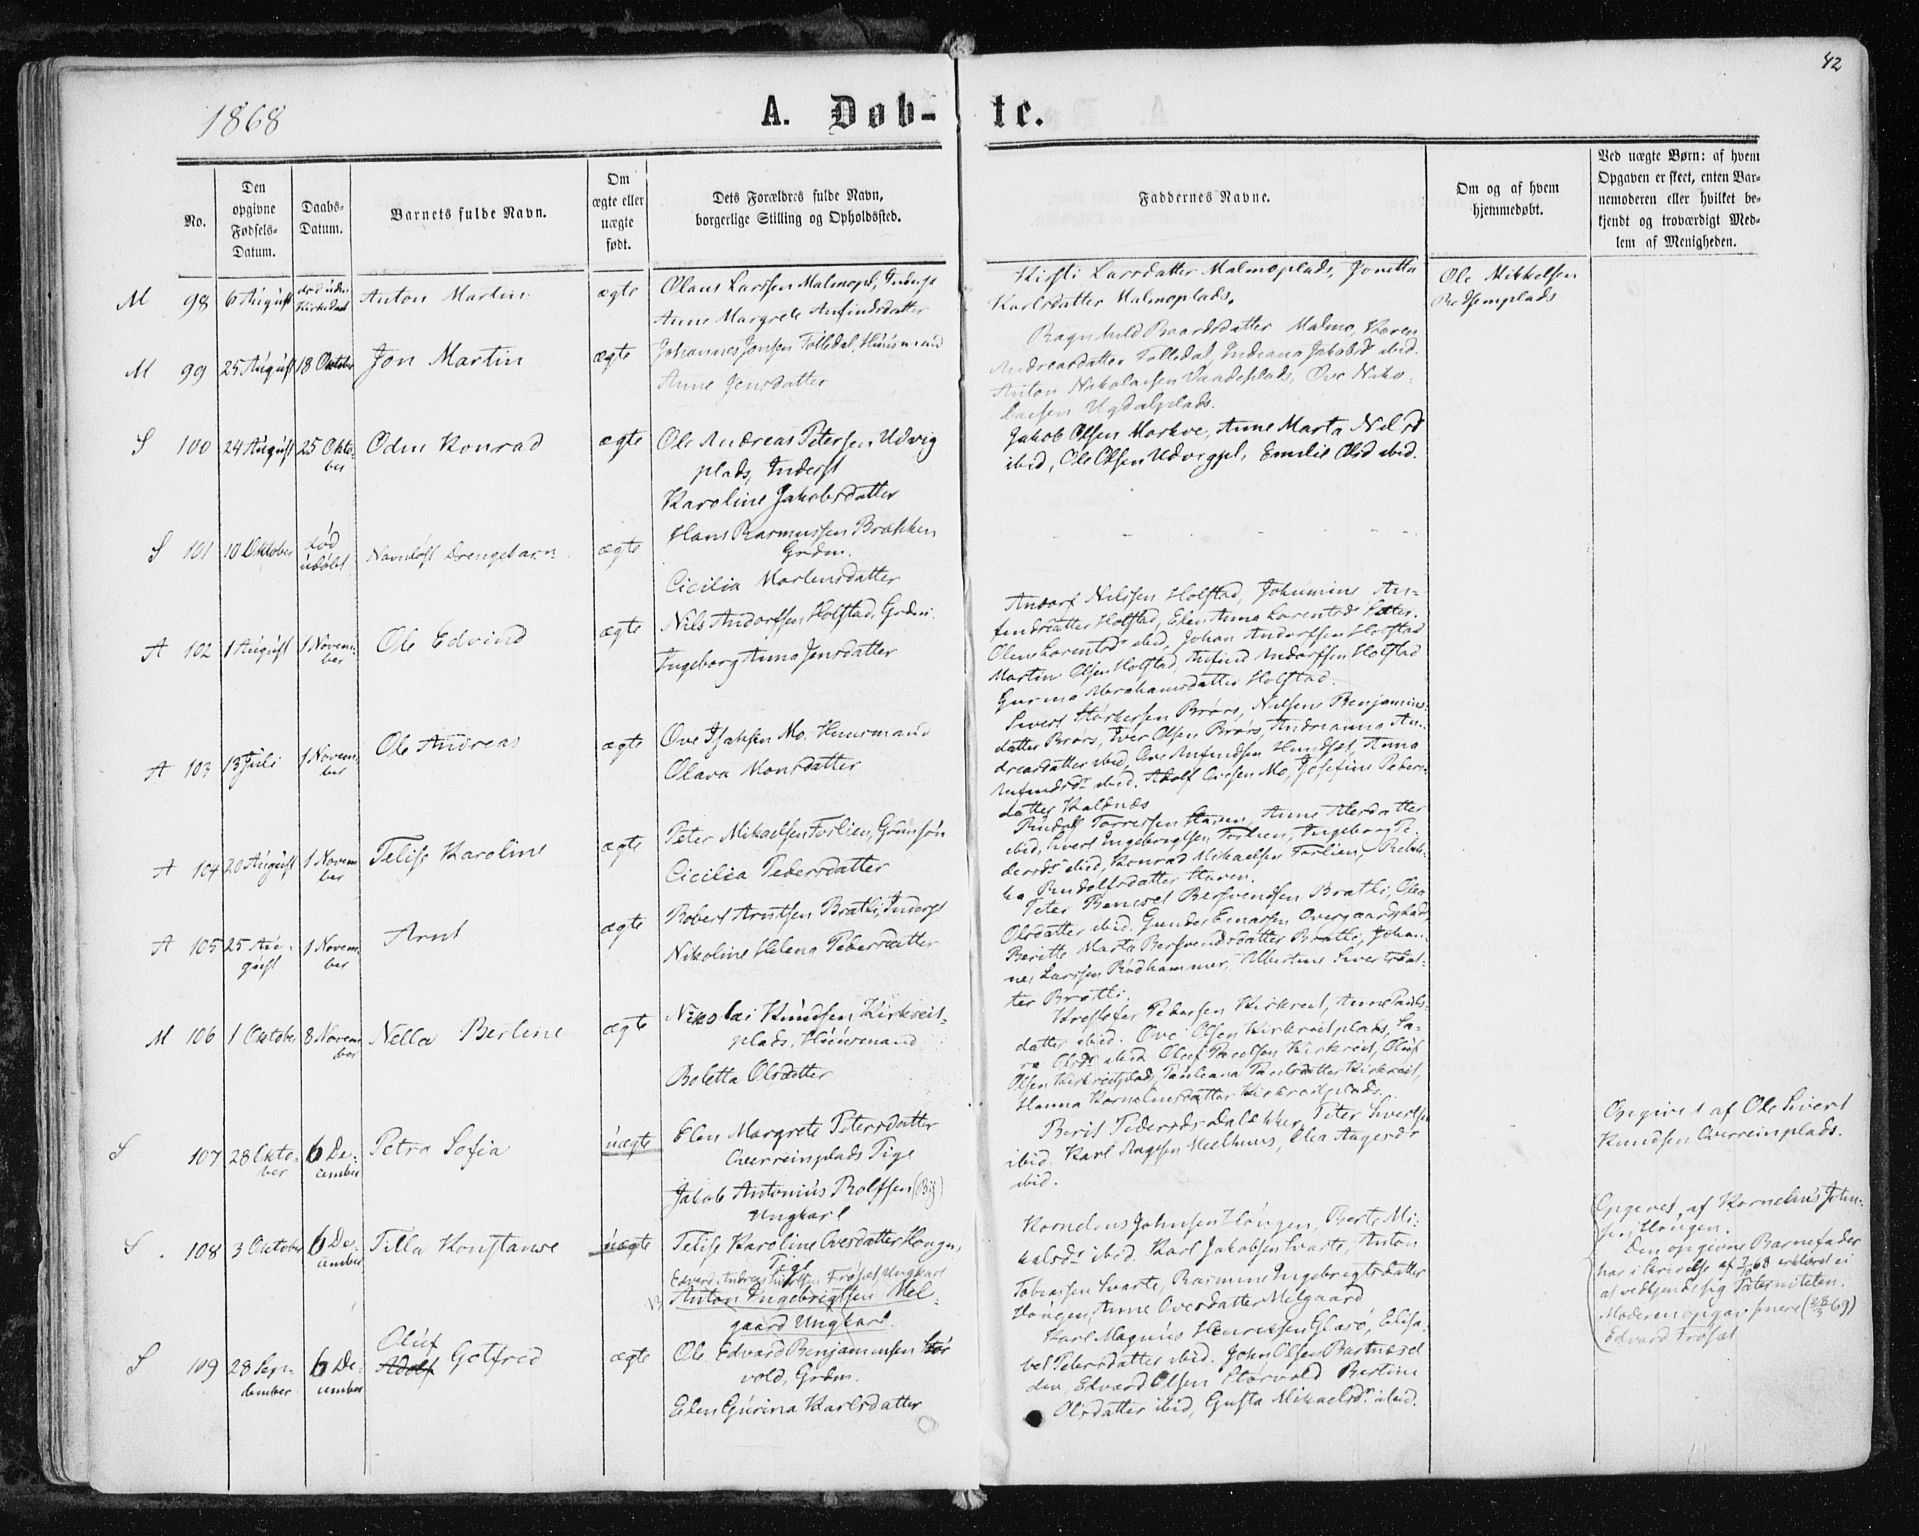 42
1868
A. Døb-
te.
No.
Den
opgivne
Fødsels-
Datum.
Daabs-
Datum.
Barnets fulde Navn.
Om
ægte eller
uægte
født.
Dets Forældres fulde Navn,
borgerlige Stilling og Opholdssted.
Faddernes Navne.
Om og af hvem
hjemmedøbt.
Ved uægte Børn: af hvem
Opgaven er skeet, enten Bar-
nemoderen eller hvilket be-
kjendt og troværdigt Med-
lem af Menigheden.
M 98 6 August død uden
Kirkedaab
Anton Martin
ægte
Olaus Larssen Malmopl, Inderst
Anne Margrete Anfindsdatter
Kirsti Larsdatter Malmoplads, Jonetta
Karlsdatter Malmoplads.
Ole Mikkelsen
Bodsemplads
M 99 25 August 18 Oktober
Jon Martin
ægte
Johannes Jonsen Tolledal, Huusmand
Anne Jensdatter
Ragnhild Baardsdatter Malmo, Karen
Andreasdatter Tolledal, Indeana Jakobsd ibid.
Anton Nikolaisen Vaadeplads, Ove Niko-
laisen Ugdalplads.
S 100 24 August 25 Okto-
ber
Odin Konrad
ægte
Ole Andreas Petersen Udvig
plads, Inderst
Karoline Jakobsdatter
Jakob Olsen Markve, Anne Marta Nilsd
ibid, Ole Olsen Udvigpl, Emilie Olsd ibid.
S 101 10 Oktober død
udøbt
Navnløst Drengebarn
ægte
Hans Rasmussen Brækken
Grdm.
Cicilia Mortensdatter
A 102 1 August 1 Novem-
ber
Ole Edvind
ægte
Nils Andorssen Holstad, Grdm.
Ingeborg Anna Jensdatter
Andors Nilssen Holstad, Johannine An-
findsdatter Holstad, Elen Anna Lorentsdr Sæter.
Oline Lorentsdr ibid, Johan Andorssen Holstad
Martin Olsen Holstad, Anfind Andorssen Holstad
Gurina Abrahamsdatter Holstad.
A 103 13 Juli 1 Novem-
ber
Ole Andreas
ægte
Ove Isaksen Mo. Huusmand
Olava Monsdatter
Sivert Størkersen Brørs, Nilsine Benjamins-
datter Brørs, Iver Olsen Brørs, Andreanna An-
dreasdatter ibid, Ove Anfindsen Hundset, Anna
Anfindsdr ibid. Adolf Ovesen Mo, Josefine Peters-
datter Kaldnæs
A 104 20 August 1 Novem-
ber
Telise Karoline
ægte
Peter Mikaelsen Forlien, Grdmsøn
Cicilia Pedersdatter
Rudolf Torressen Staven, Anne Alersdatter
ibid, Sivert Ingebrigtsen Forlien, Ingeborg Pe-
dersdr ibid, Konrad Mikaelsen Forlien, Rebek-
ka Rudolfsdatter Staven.
A 105 25 Au-
gust
1 Novem-
ber
Arnt
ægte
Robert Arntsen Bratli, Inderst
Nikoline Helena Pedersdatter
Peter Benoved Bersvendsen Bratli, Olea
Olsdatter ibid. Gunder Einarsen Overgaardsplads
Beritte Marta Bersvendsdatter Bratli, Johan-
nes Larssen Rødhammer, Albertine Sivertsdat-
ter Bratli.
M 106 1 Oktober 8 Novem-
ber
Nella Berline
ægte
Nikolai Knudsen Kirkreit-
plads, Huusmand
Boletta Olsdatter
Kristofer Pedersen Kirkreit, Anne Pauls-
datter ibid. Ove Olsen Kirkreitplads, Sa-
ra Olsdr ibid. Oluf Paulsen Kirkreit, Oluf
Olsen Kirkreitplads, Pauleana Paulsdatter Kirkreit,
Hanna Korneliusdatter Kirkreitplads.
S 107 28 Okto-
ber
6 De-
cember
Petra Sofia
uægte
Elen Margrete Petersdatter
Overreinplads Pige
Jakob Antonius Rolfsen (Big)
Ungkarl
Berit Pedersdr Dalækker, Peter Sivertsen
ibid. Karl Aagesen Meelhuus, Elea Aagesdr
ibid.
Opgivet af Ole Sivert
Knudsen Overreinplads.
S. 108 3 Oktober 6 De-
cember
Tilla Konstanse
uægte
Telise Karoline Ovesdatter Hougn,
Pige
Edvard Andreas Frøset Ungkarl
Anton Ingebrigtsen Mel-
gaard Ungkarl.
Kornelius Johnsen Hougen, Berit Mi-
kalsdr ibid. Karl Jakobsen Svarte, Anton
Tobiassen Svarte, Rasmine Ingebrigtsdatter
Hougen, Anne Ovesdatter Melgaard
Opgivet af Kornelius John-
sen Hougen.
Den opgivne Barnefader
har i Skrivelse af 7/12 68 erklæret ei
at vedkjende sig Paterniteten.
Moderen opgav senere (28/3 69)
Edvard Frøset
S 109 28 Sep-
tember
6 De-
cember
Oluf
Adolf Gotfred
ægte
Ole Edvard Benjaminsen Stor
vold, Grdm.
Elen Gurina Karlsdatter
Karl Magnus Henriksen Glarø, Elisa-
bet Petersdatter ibid. John Olsen Bartnæsel
den, Edvard Olsen Størvold Bertine
Olsdatter ibid, Gusta Mikaelsdr ibid.